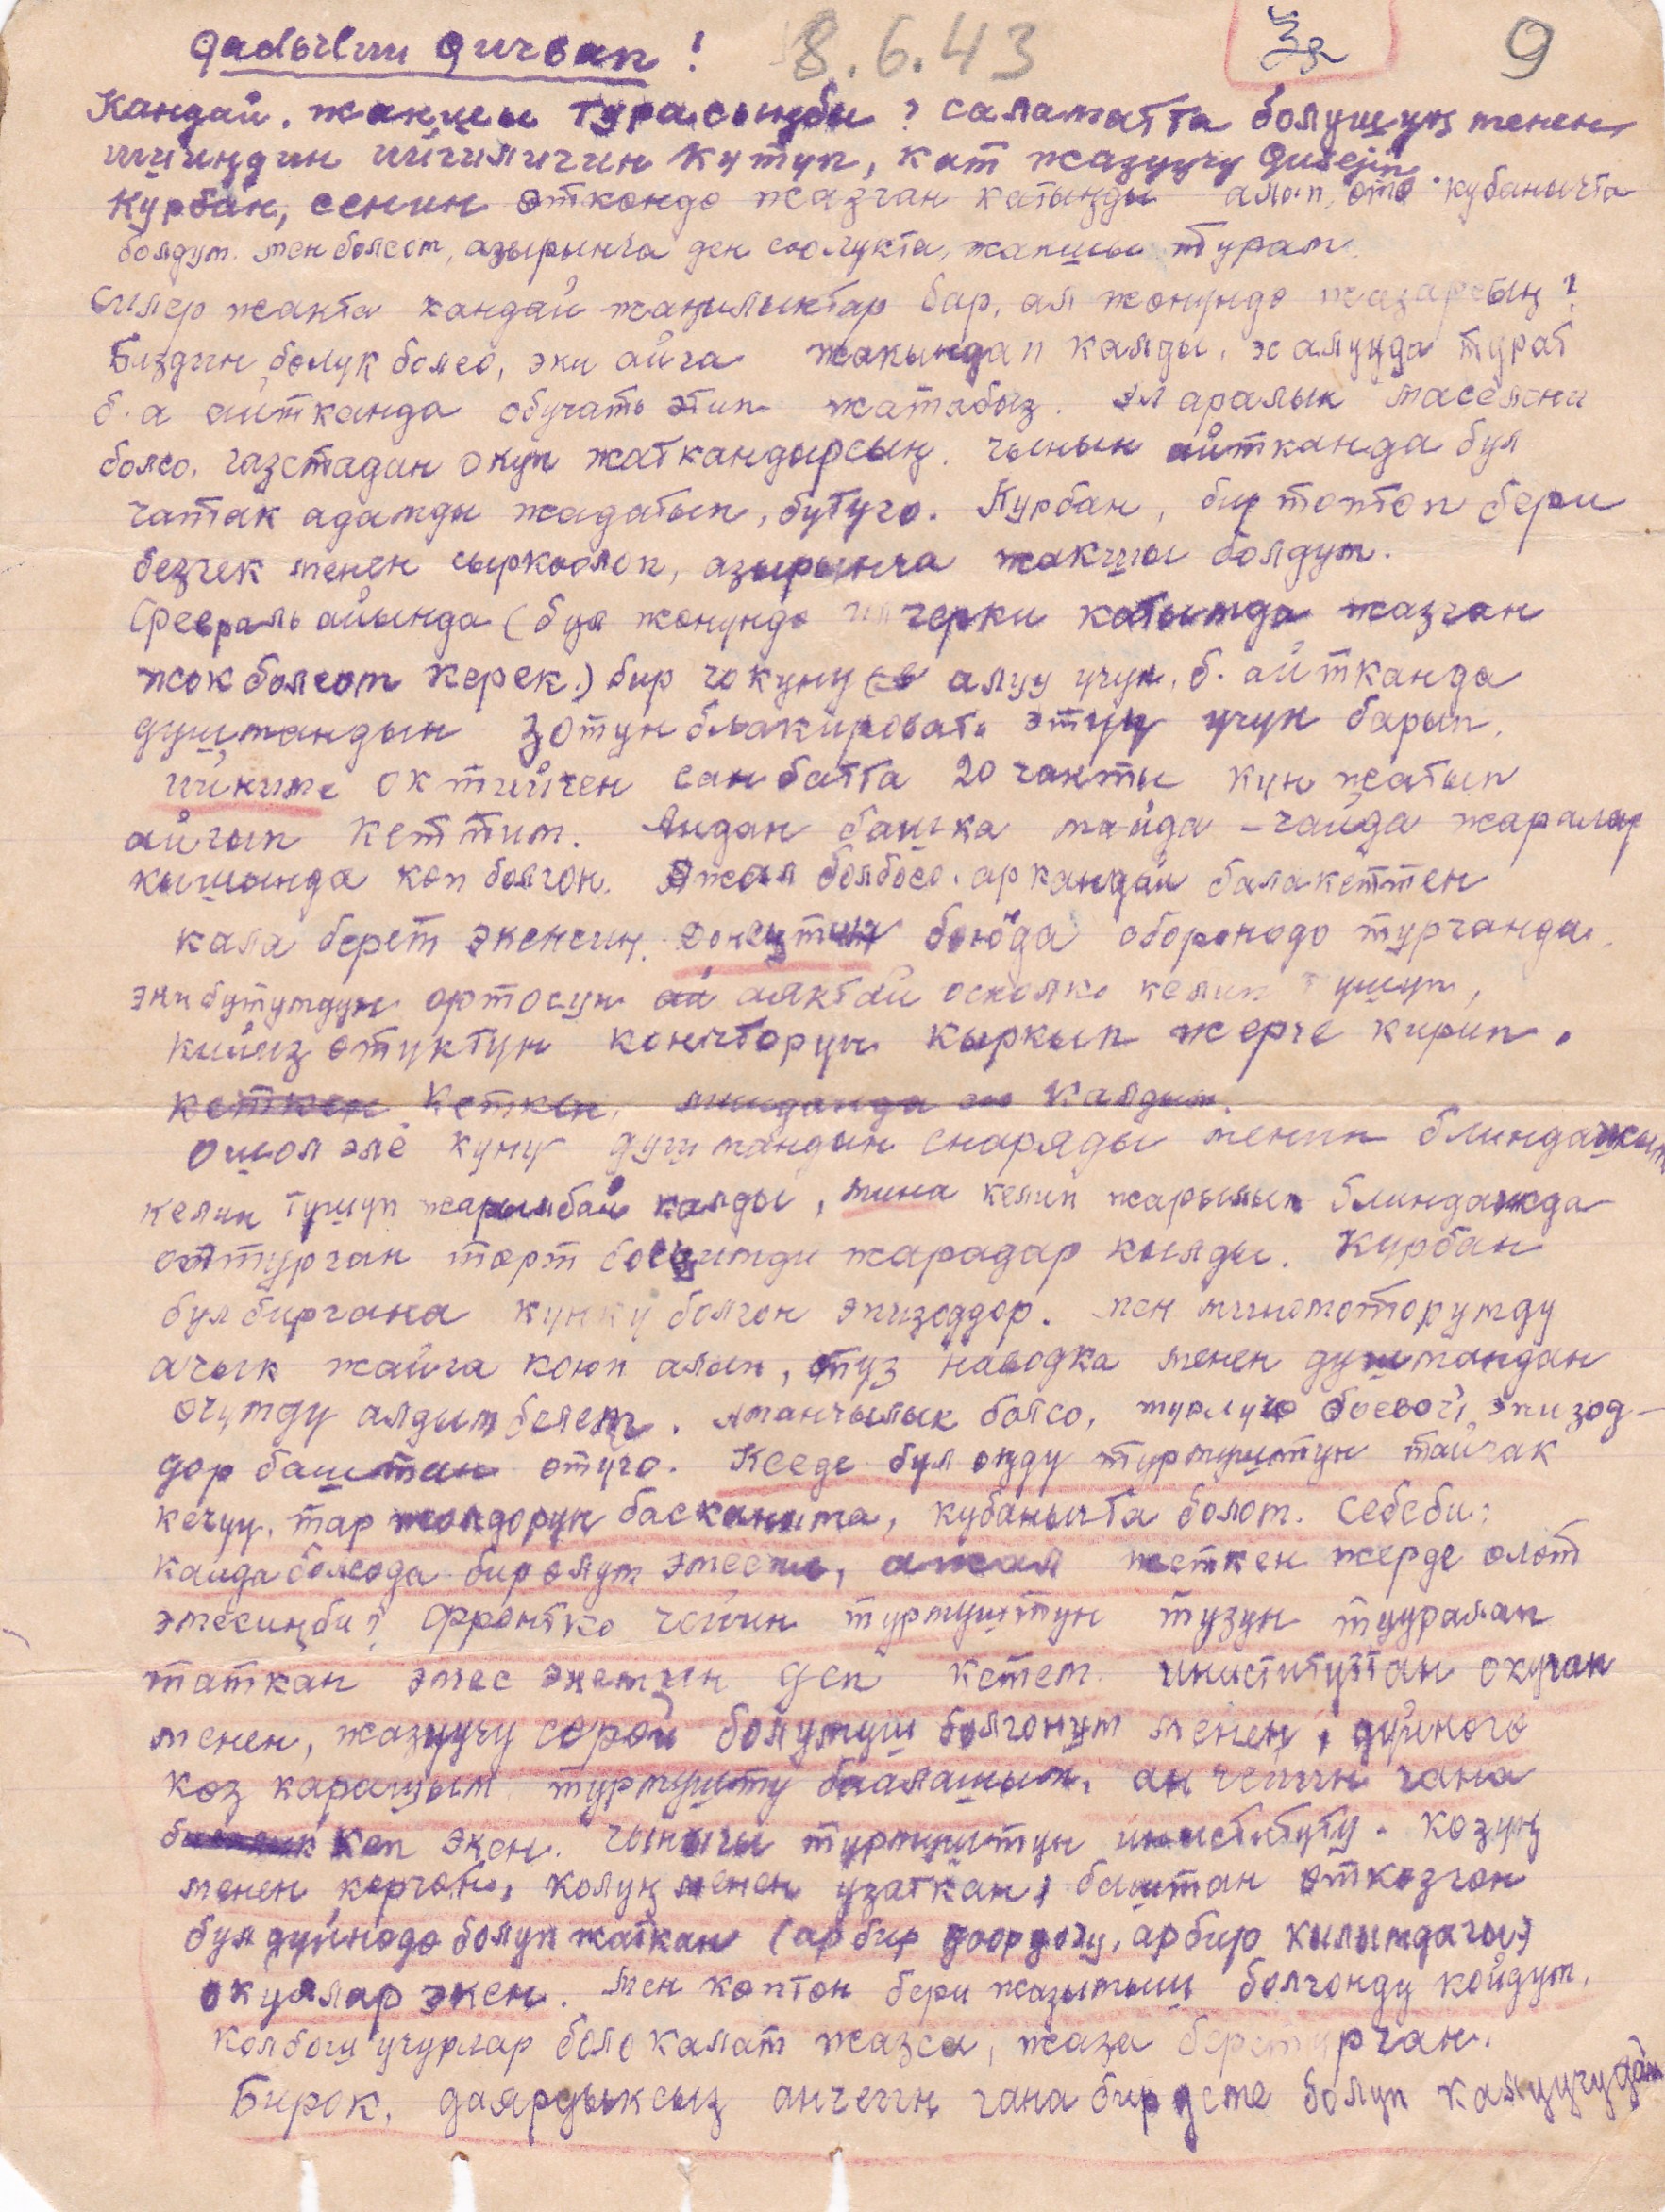 Qadьrluu Qurban! 8.6.43 9
Кандай, жакшы турасыңбы? саламатта болушуң менен,
ишиңдин ийгиличин кутуп, кат жазуучу Qusejin
Курбан, сенин өткөндө жазган катыңды алып, өтө кубанычта
болдум. мен болсом, азырынча ден соолукта, жакшы турам.
Силер жакта кандай жаңылыктар бар, ал жөнүндө жазарсың?
Биздин бөлук болсо, эки айга жакындап калды, эс алууда турат
б.а айтканда обучать этип жатабыз. эл аралык маселени
болсо, газетадан окуп жаткандырсың. чынын айтканда бул
чатак адамды жадатып, бутуго. Курбан, бир топтон бери
безгек менен сыркоолоп, азырынча жакшы болдум.
Февраль айында (бул жонундо черки катымда жазган
жок болсом керек.) бир чокуну алуу учун, б. айтканда
душмандын зотун блакировать этуу учун барып,
ийниме ок тийген санбатта 20 чакты кун жатып
айыгып кеттим. Андан башка майда-чайда жаралар
кышында коп болгон. Ажал болбосо, ар кандай балакеттен
кала берет экенсиң. бойдо оборонодо турганда,
эки бутумдун ортосун аяктай осколко келип тушуп,
кийиз отуктун кончторун кыркып жерге кирип,
кеткен кеткен, калдым.
Ошол эле куну душмандын снаряды менин блиндажыма
келип тушуп жарылбай калды, мина келип жарылып блиндажда
оттурган торт боецимди жарадар кылды. Курбан
бул биргана кунку болгон эпизоддор. мен миномоторумду
ачык жайга коюп алып, туз наводка менен душмандан
очумду алдым белем. Аманчылык болсо, турлуго боевой эпизод-
дор баштан отуго. Кееде бул оңду турмуштун тайгак
кечуу, тар жолдорун басканыма, кубанычта болом. Себеби:
кайда болсода бир олум эмеспи, ажал жеткен жерде олот
эмесиңби? Фронтко чейин турмуштун тузун тууралап
таткан эмес экемин деп кетем. иниститутан окуган
менен, жазуучу сорой болумуш болгонум менен, дуйного
коз карашым турмушту баалашым, ан чейин гана
кеп экен. Чыныгы турмуштун иниституту - козуң
менен көргөн, колуң менен узаткан, баштан откозгон
бул дуйнодо болуп жаткан (ар бир доордогу, арбир кылымдагы)
окуялар экен. Мен коптон бери жазымыш болгонду койдум,
колбош учурлар боло калат жазса, жаза бере турган.
Бирок, даярдыксыз анчейин гана бир деме болуп калуучудай